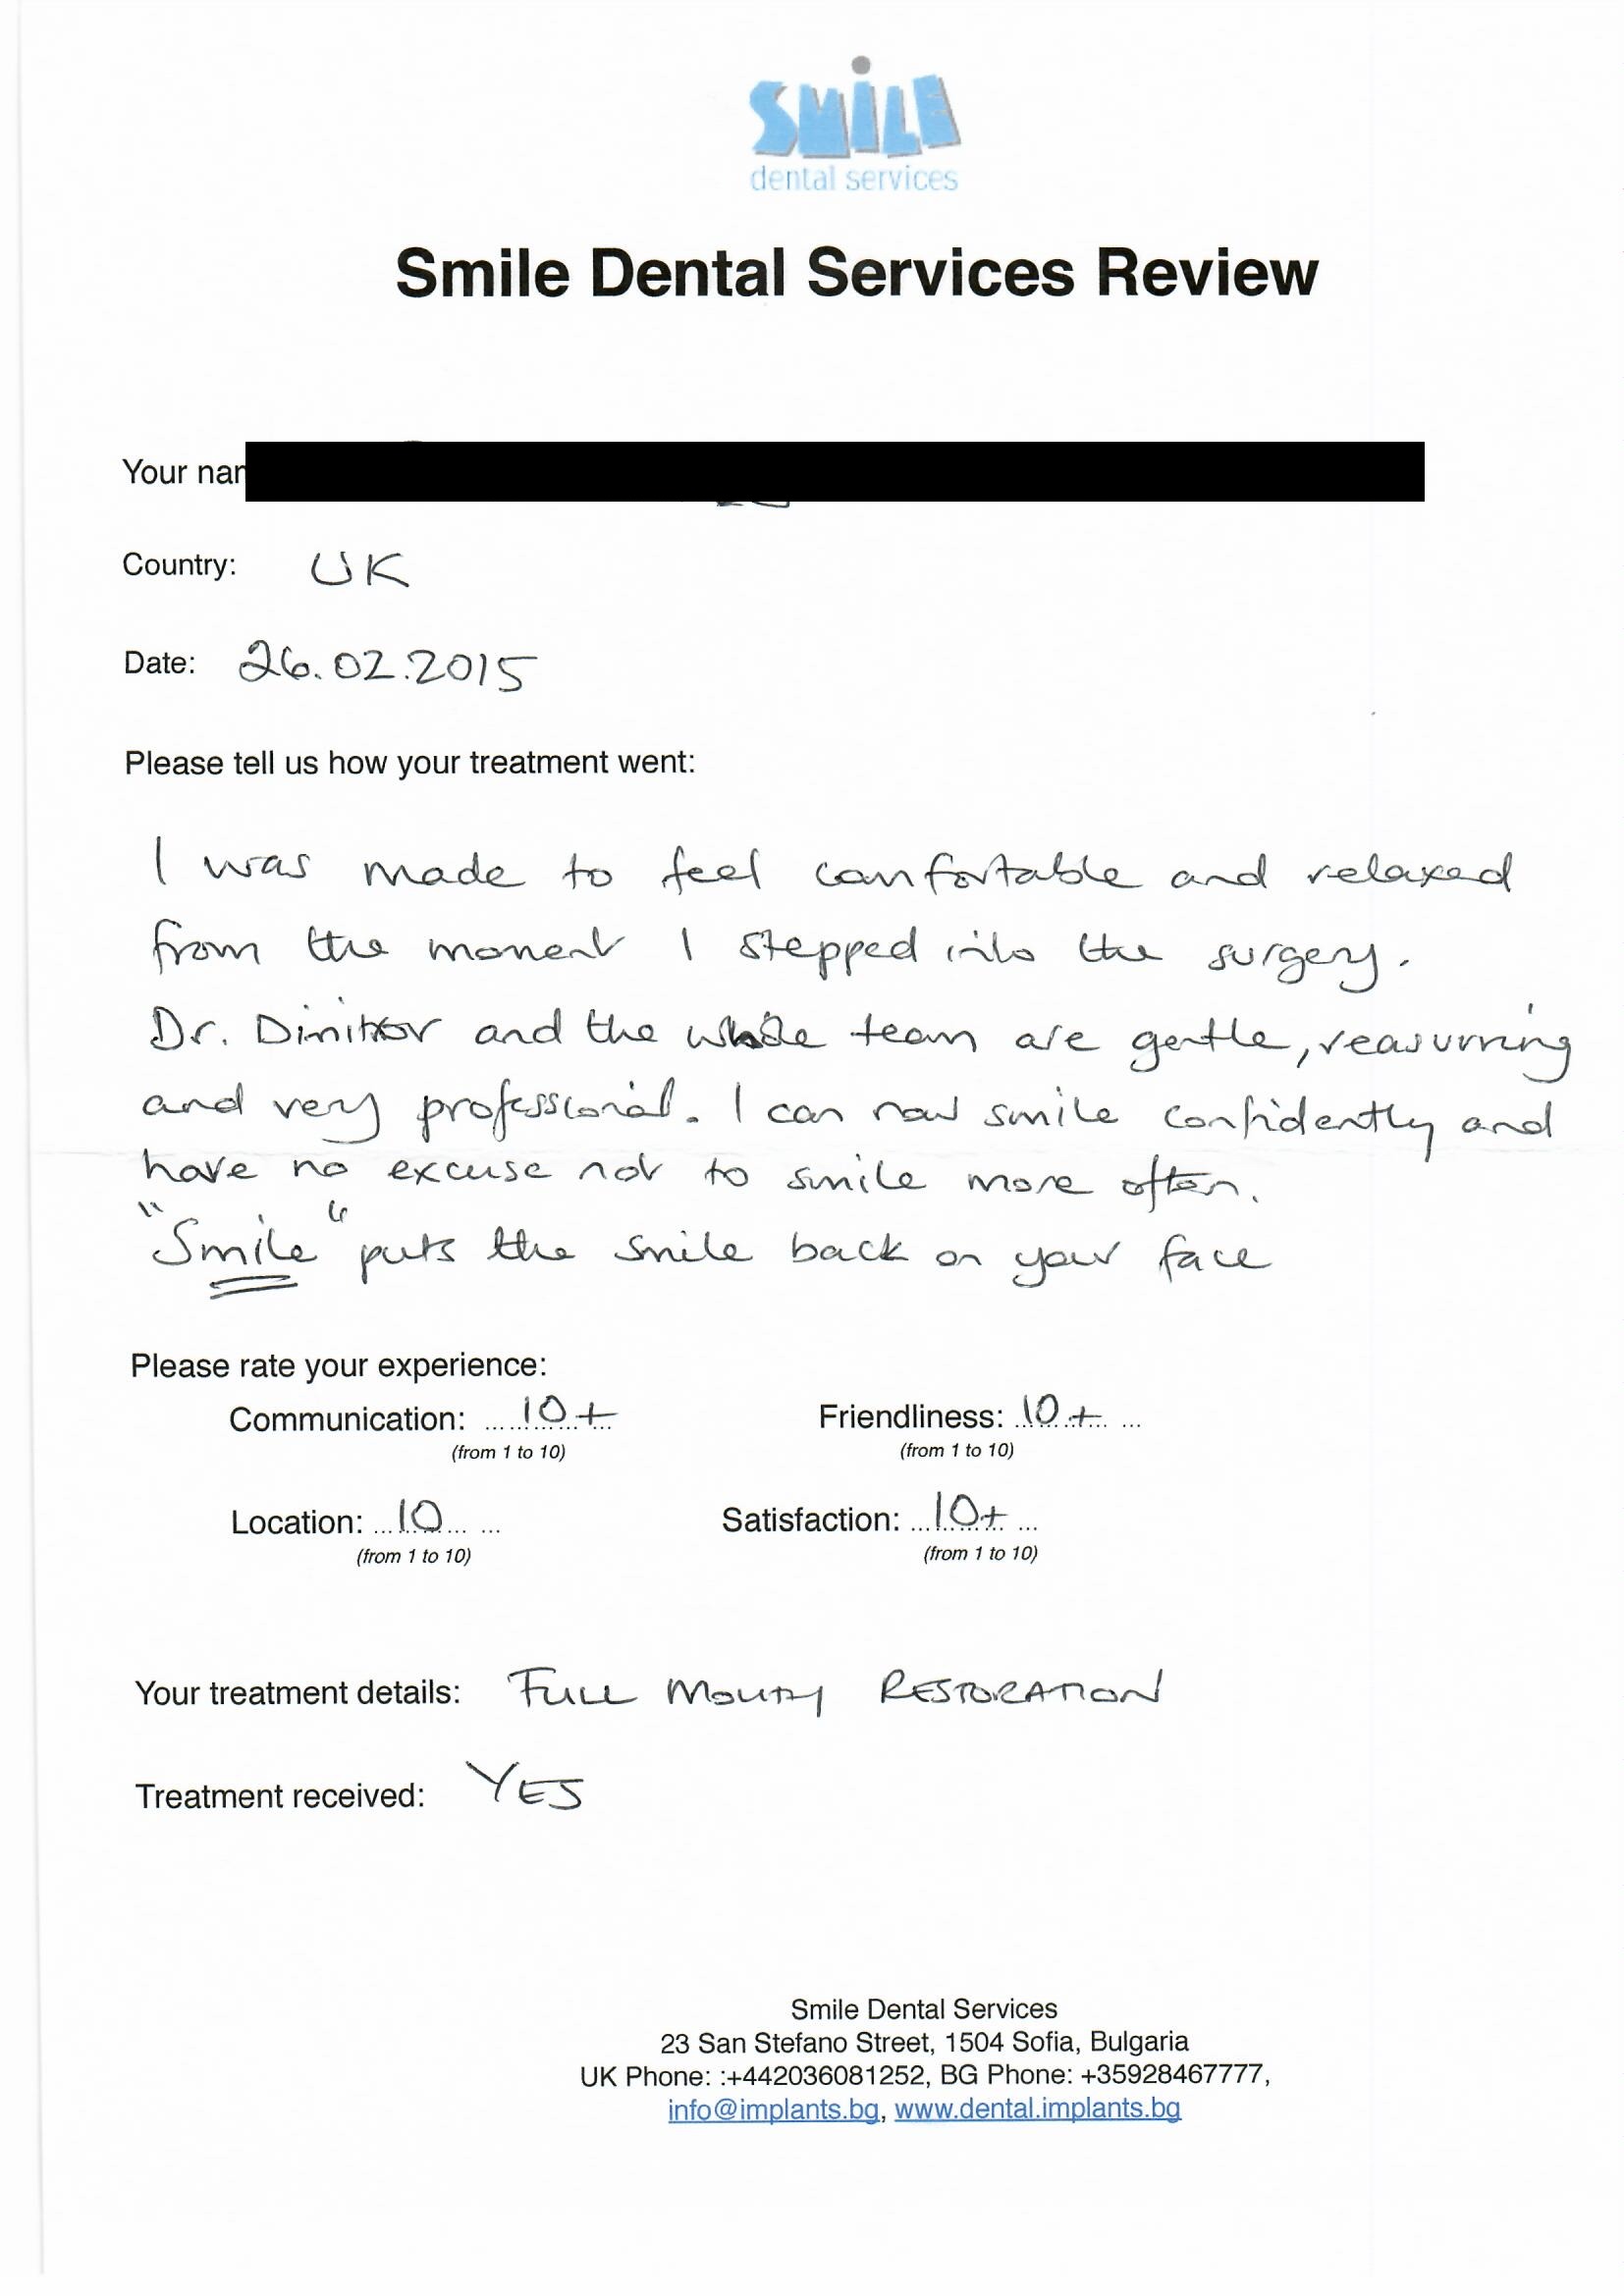 SMILE
dental services
Smile Dental Services Review
Your nam
Country: UK
Date: 26.02.2015
Please tell us how your treatment went:
I was made to feel comfortable and relaxed
from the moment I stepped into the surgery.
Dr. Dimitrov and the whole team are gentle, reasurring
and very professional. I can now smile confidently and
have no excuse not to smile more often.
"Smile" puts the smile back on your face
Please rate your experience:
Communication: 10+ Friendliness: 10+
(from 1 to 10) (from 1 to 10)
Location: 10 Satisfaction: 10+
(from 1 to 10) (from 1 to 10)
Your treatment details: FULL MOUTH RESTORATION
Treatment received: YES
Smile Dental Services
23 San Stefano Street, 1504 Sofia, Bulgaria
UK Phone: :+442036081252, BG Phone: +35928467777,
info@implants.bg, www.dental.implants.bg